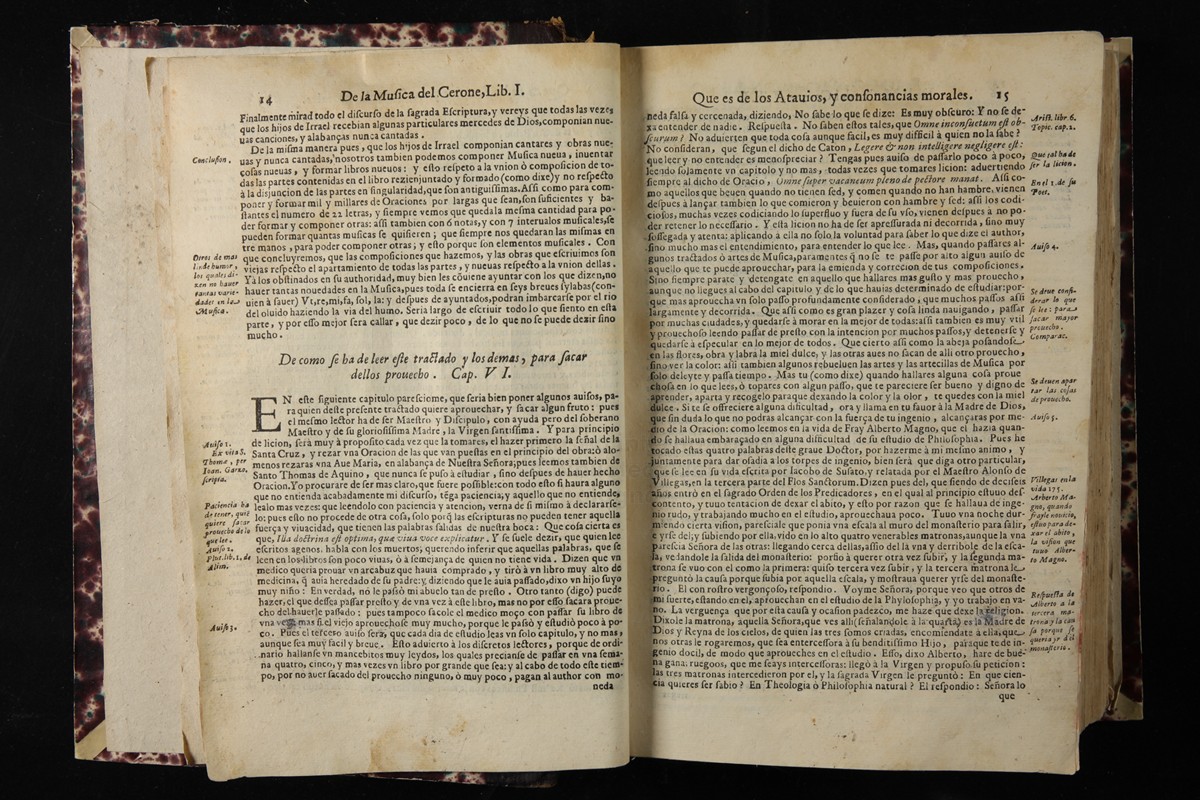 14
De la Musica del Cerone, Lib. I.
Finalmente mirad todo el discurso de la sagrada Escriptura, y vereys que todas las vezes
que los hijos de Israel recebian algunas particulares mercedes de Dios, componian nue-
uas canciones, y alabanças nunca cantadas.
De la misma manera pues, que los hijos de Israel componian cantares y obras nue-
uas y nunca cantadas, nosotros tambien podemos componer Musica nueua, inuentar
cosas nueuas, y formar libros nueuos: y esto respeto a la vnion ò composicion de to-
das las partes contenidas en el libro rezienjuntado y formado (como dixe) y no respeto
à la disjuncion de las partes en singularidad, que son antiguissimas. Assi como para com-
poner y formar mil y millares de Oraciones por largas que sean, son suficientes y ba-
stantes el numero de 22 letras, y siempre vemos que queda la misma cantidad para po-
der formar y componer otras: assi tambien con 6 notas, y con 7 interualos musicales, se
pueden formar quantas musicas se quisieren; que siempre nos quedaran las mismas en
tre manos, para poder componer otras; y esto porque son elementos musicales. Con
que concluyremos, que las composiciones que hazemos, y las obras que escriuimos son
viejas respecto el apartamiento de todas las partes, y nueuas respecto a la vnion dellas.
Y à los obstinados en su authoridad, muy bien les cõuiene ayuntar con los que dizen, no
hauer tantas nouedades en la Musica, pues toda se encierra en seys breues sylabas (con-
uien à sauer) Vt, re, mi, fa, sol, la: y despues de ayuntados, podran imbarcarse por el rio
del oluido haziendo la via del humo. Seria largo de escriuir todo lo que siento en esta
parte, y por esso mejor sera callar, que dezir poco, de lo que no se puede dezir sino
mucho.
Conclusion.
Otros de mas
linde humor,
los quales di-
zen no hauer
tantas varie-
dades en la
Musica.
De como se ha de leer este tractado y los demas, para sacar
dellos prouecho. Cap. VI.
EN este siguiente capitulo paresciome, que seria bien poner algunos auisos, pa-
ra quien deste presente tractado quiere aprouechar, y sacar algun fruto: pues
el mesmo lector ha de ser Maestro y Discipulo, con ayuda pero del soberano
Maestro y de su gloriosissima Madre, la Virgen santissima. Y para principio
de licion, serà muy à proposito cada vez que la tomares, el hazer primero la señal de la
Santa Cruz, y rezar vna Oracion de las que van puestas en el principio del obra: ò alo-
menos rezaras vna Aue Maria, en alabança de Nuestra Señora; pues leemos tambien de
Santo Thomas de Aquino, que nunca se puso à estudiar, sino despues de hauer hecho
Oracion. Yo procurare de ser mas claro, que fuere possible: con todo esto si haura alguno
que no entienda acabadamente mi discurso, tẽga paciencia, y aquello que no entiende,
lealo mas vezes: que leendolo con paciencia y atencion, verna de si mismo à declararse
lo: pues esto no procede de otra cosa, solo porq̃ las escripturas no pueden tener aquella
fuerça y viuacidad, que tienen las palabras salidas de nuestra boca: Que cosa cierta es
que, Illa doctrina est optima, que viua voce explicatur. Y se suele dezir, que quien lee
escritos agenos, habla con los muertos, querendo inferir que aquellas palabras, que se
leen en los libros son poco viuas, ò à semejança de quien no tiene vida. Dizen que vn
medico queria prouar vn arcabuz que hauia comprado, y tirò à vn libro muy alto de
medicina, q̃ auia heredado de su padre: y, diziendo que le auia passado, dixo vn hijo suyo
muy niño: En verdad, nò le passò mi abuelo tan de presto. Otro tanto (digo) puede
hazer, el que dessea passar presto y de vna vez à este libro, mas no por esso sacara proue-
cho del hauerle passado: pues tampoco sacole el medico moço con passar su libro de
vna vez, mas si el viejo aprouechose muy mucho, porque le passò y estudiò poco à po-
co. Pues el tercero auiso serà, que cada dia de estudio leas vn solo capitulo, y no mas,
aunque sea muy facil y breue. Esto aduierto à los discretos lectores, porque de ordi-
nario hallanse vn mancebitos muy leydos, los quales precianse de passar en vna sema-
na quatro, cinco, y mas vezes vn libro por grande que sea: y al cabo de todo este tiem-
po, por no auer sacado del prouecho ninguno, ò muy poco, pagan al author con mo-
neda
Auiso 1.
Ex vita S.
Thomæ, per
Ioan. Garza.
scripta.
Paciencia ha
de tener, quiẽ
quiere sacar
prouecho de lo
que lee.
Auiso 2.
Plut. lib. 1. de
Alim.
Auiso 3.
Que es de los Atauios, y consonancias morales.
15
neda falsa y cercenada, diziendo, No sabe lo que se dize: Es muy obscuro: Y no se de-
xa entender de nadie. Respuesta. No saben estos tales, que Omne inconsuetum est ob-
scurum? No aduierten que toda cosa aunque facil, es muy difficil à quien no la sabe?
No consideran, que segun el dicho de Caton, Legere & non intelligere negligere est:
que leer y no entender es menospreciar? Tengas pues auiso de passarlo poco à poco,
leendo solamente vn capitulo y no mas, todas vezes que tomares licion: aduertiendo
siempre al dicho de Oracio, Omne super vacaneum pleno de pectore manat. Assi co-
mo aquellos que beuen quando no tienen sed, y comen quando no han hambre, vienen
despues à lançar tambien lo que comieron y beuieron con hambre y sed: assi los codi-
ciosos, muchas vezes codiciando lo superfluo y fuera de su vso, vienen despues à no po-
der retener lo necessario. Y esta licion no ha de ser apressurada ni decorrida, sino muy
sossegada y atenta: aplicando à ella no solo la voluntad para saber lo que dize el author,
sino mucho mas el entendimiento, para entender lo que lee. Mas, quando passares al-
gunos tractados ò artes de Musica, paramentes q̃ no se te passe por alto algun auiso de
aquello que te puede aprouechar, para la emienda y correcion de tus composiciones.
Sino siempre parate y detengate en aquello que hallares mas gusto y mas prouecho,
aunque no llegues al cabo del capitulo y de lo que hauias determinado de estudiar: por-
que mas aprouecha vn solo passo profundamente considerado, que muchos passos assi
largamente y decorrida. Que assi como es gran plazer y cosa linda nauigando, passar
por muchas ciudades, y quedarse à morar en la mejor de todas: assi tambien es muy vtil
y prouechoso leendo passar de presto con la intencion por muchos passos, y detenerse y
quedarse à especular en lo mejor de todos. Que cierto assi como la abeja posandose
en las flores, obra y labra la miel dulce, y las otras aues no sacan de alli otro prouecho,
sino ver la color: assi tambien algunos rebueluen las artes y las artecillas de Musica por
solo deleyte y passa tiempo. Mas tu (como dixe) quando hallares alguna cosa proue
chosa en lo que lees, ò topares con algun passo, que te pareciere ser bueno y digno de
aprender, aparta y recogelo paraque dexando la color y la olor, te quedes con la miel
dulce. Si te se offreciere alguna dificultad, ora y llama en tu fauor à la Madre de Dios,
que sin duda lo que no podras alcançar con la fuerça de tu ingenio, alcançaras por me-
dio de la Oracion: como leemos en la vida de Fray Alberto Magno, que el hazia quan-
do se hallaua embaraçado en alguna difficultad de su estudio de Philosophia. Pues he
tocado estas quatro palabras deste graue Doctor, por hazerme à mi mesmo animo, y
juntamente para dar osadia a los torpes de ingenio, bien serà que diga otro particular,
que se lee en su vida escrita por Iacobo de Susato, y relatada por el Maestro Alonso de
Villegas, en la tercera parte del Flos Sanctorum. Dizen pues del, que siendo de deciseis
años entrò en el sagrado Orden de los Predicadores, en el qual al principio estuuo des-
contento, y tuuo tentacion de dexar el abito, y esto por razon que se hallaua de inge-
nio rudo, y trabajando mucho en el estudio, aprouechaua poco. Tuuo vna noche dur-
miendo cierta vision, paresciale que ponia vna escala al muro del monasterio para salir,
e yrse del; y subiendo por ella, vido en lo alto quatro venerables matronas, aunque la vna
parescia Señora de las otras: llegando cerca dellas, assio del la vna y derribole de la esca-
la, vedandole la salida del monasterio: porfiò à querer otra vez subir, y la segunda ma-
trona se vuo con el como la primera: quiso tercera vez subir, y la tercera matrona le
preguntò la causa porque subia por aquella escala, y mostraua querer yrse del monaste-
rio. El con rostro vergonçoso, respondio. Voyme Señora, porque veo que otros de
mi suerte, estando en el, aprouechan en el estudio de la Phylosophia, y yo trabajo en va-
no. La verguença que por esta causa y ocasion padezco, me haze que dexe la religion.
Dixole la matrona, aquella Señora, que ves alli (señalandole à la quarta) es la Madre de
Dios y Reyna de los cielos, de quien las tres somos criadas, encomiendate à ella, que
nos otras le rogaremos, que sea entercessora à su benditissimo Hijo, paraque te de in-
genio docil, de modo que aproueches en el estudio. Esso, dixo Alberto, hare de bue-
na gana. ruegoos, que me seays intercessoras: llegò à la Virgen y propuso su peticion:
las tres matronas intercedieron por el, y la sagrada Virgen le preguntò: En que cien-
cia quieres ser sabio? En Theologia ò Philosophia natural? El respondio: Señora lo
que
Arist. libr. 6.
Topic. cap. 2.
Que tal ha de
ser la licion.
En el 2 de su
Poet.
Auiso 4.
Se deue consi-
derar lo que
se lee: para
sacar mayor
prouecho.
Comparac.
Se deuen apar
tar las cosas
de prouecho.
Auiso 5.
Villegas en la
vida 175.
Alberto Ma-
gno, quando
frayle nouicio,
estuuo para de-
xar el abito,
la vision que
tuuo Alber-
to Magno.
Respuesta de
Alberto a la
tercera ma-
trona y la cau
sa porque se
queria yr del
monasterio.